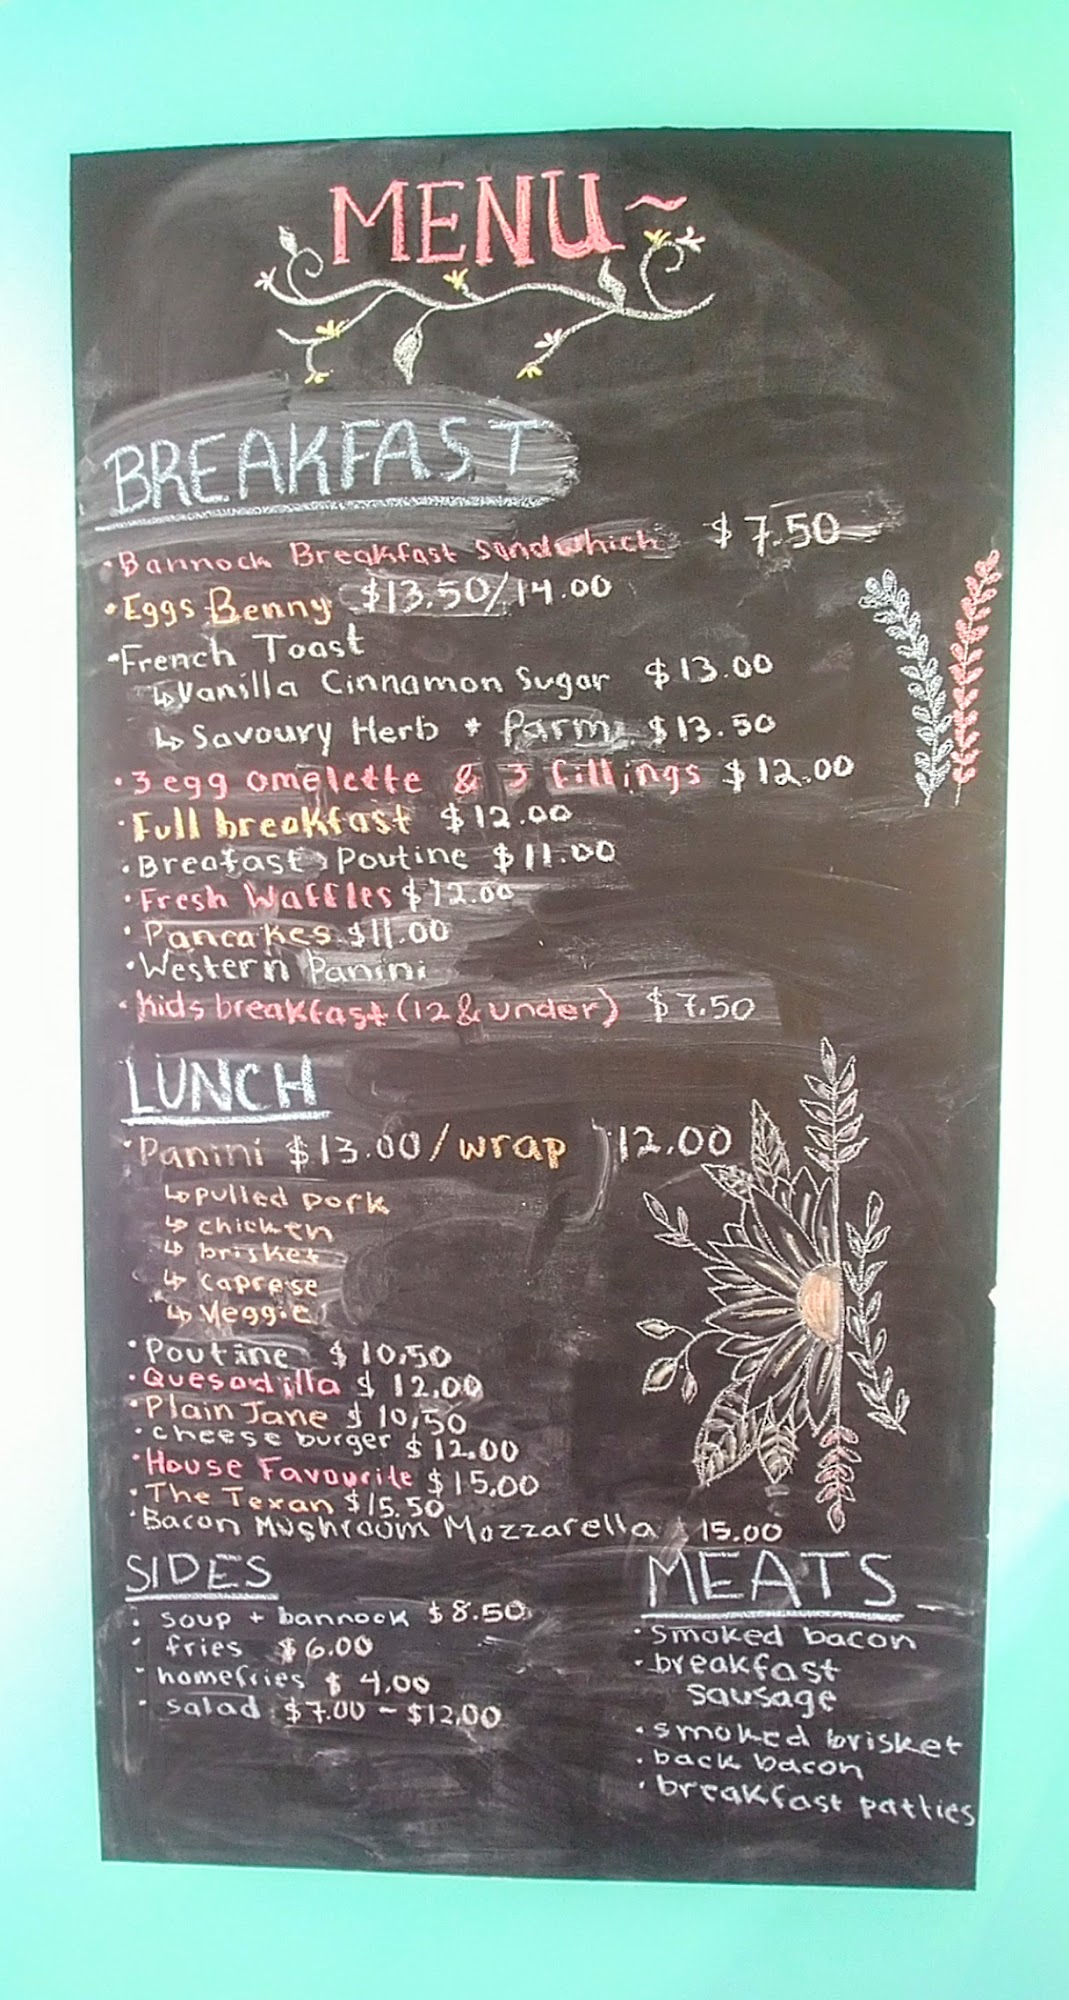 MENU~
BREAKFAST
• Bannock Breakfast Sandwhich $7.50
• Eggs Benny $13.50/14.00
• French Toast
↳ Vanilla Cinnamon Sugar $13.00
↳ Savoury Herb + Parm $13.50
• 3 egg omelette & 3 fillings $12.00
• Full breakfast $12.00
• Breafast Poutine $11.00
• Fresh Waffles $12.00
• Pancakes $11.00
• Western Panini
• Kids breakfast (12 & under) $7.50
LUNCH
• Panini $13.00/wrap 12.00
↳ pulled pork
↳ chicken
↳ brisket
↳ caprese
↳ Veggie
• Poutine $10.50
• Quesadilla $12.00
• Plain Jane $10.50
• cheese burger $12.00
• House Favourite $15.00
• The Texan $15.50
• Bacon Mushroom Mozzarella $15.00
SIDES
• soup + bannock $8.50
• fries $6.00
• homefries $4.00
• salad $7.00 - $12.00
MEATS
• smoked bacon
• breakfast
sausage
• smoked brisket
• back bacon
• breakfast patties